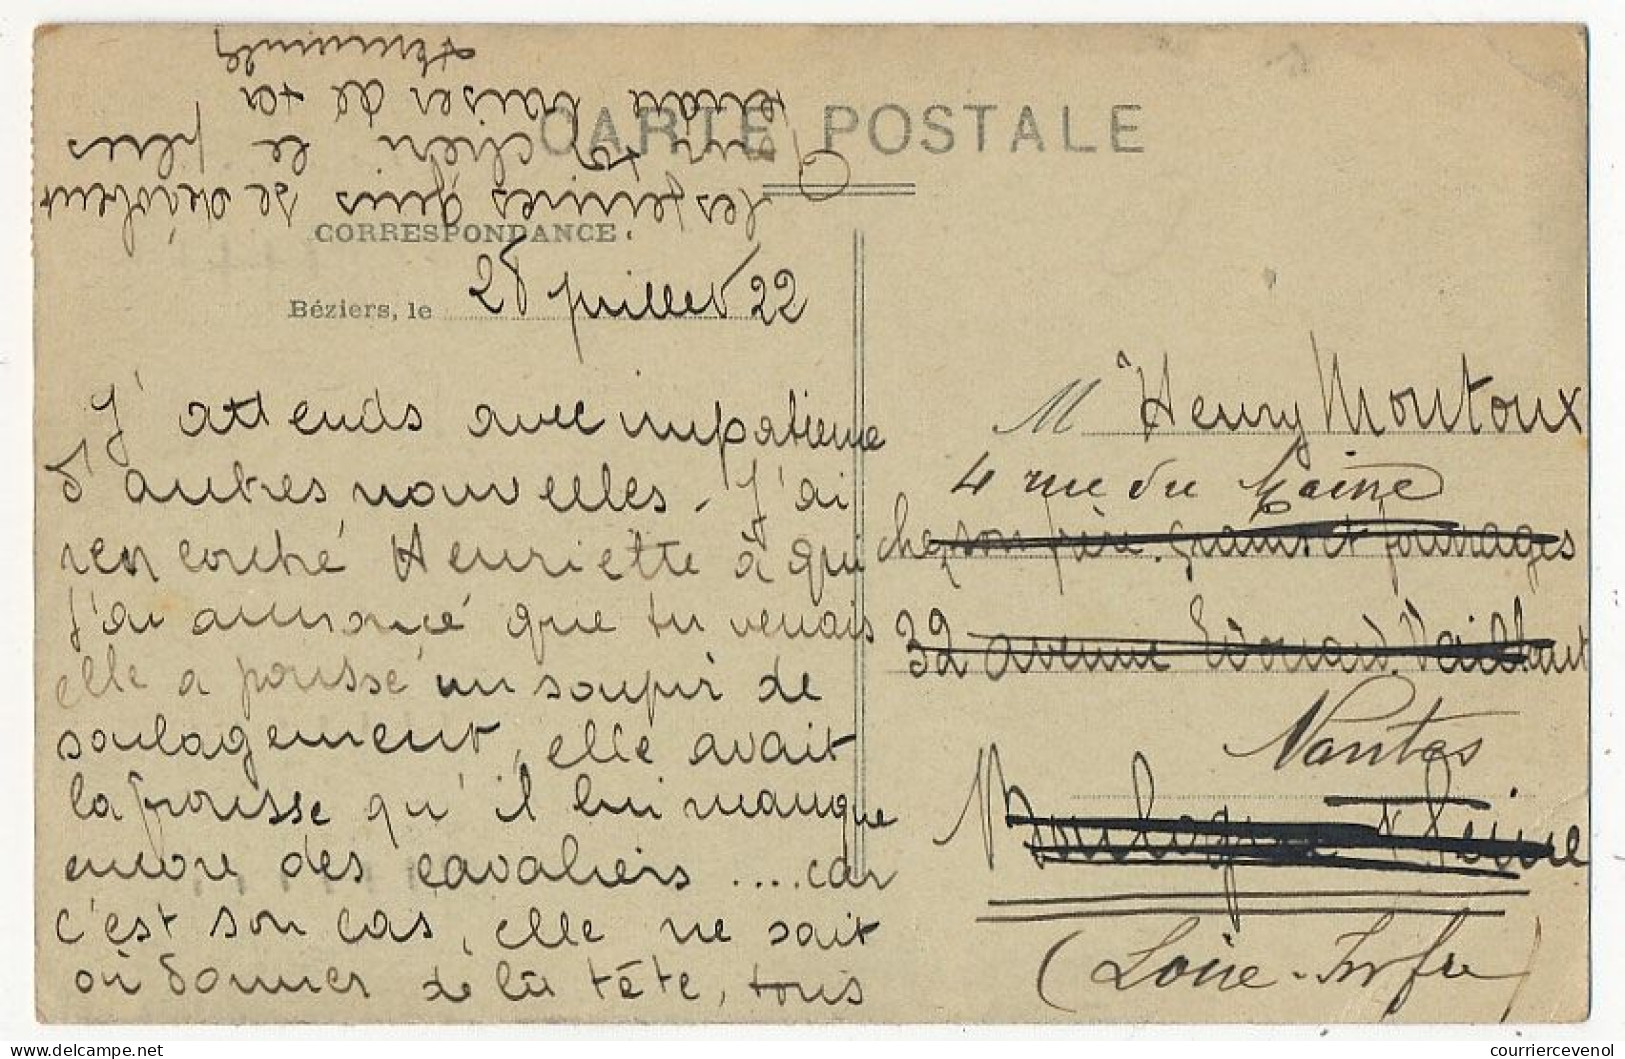 CARTE POSTALE
CORRESPONDANCE
Béziers, le 28 juillet 22
J'attends avec impatience
d'autres nouvelles. J'ai
rencontré Henriette à qui
j'ai annoncé que tu venais
elle a poussé un soupir de
soulagement, elle avait
la frousse qu'il lui manque
encore des cavaliers .... car
c'est son cas, elle ne sait
où donner de la tête, tous
les jeunes gens se dérobent
un chien le plus
baiser de ta
M Henry Montoux
4 rue du Maine
chez son père. Grains et fourrages
32 avenue Edouard Vaillant
Nantes
Boulogne s/ Seine
(Loire-Infre)
courriercevenol